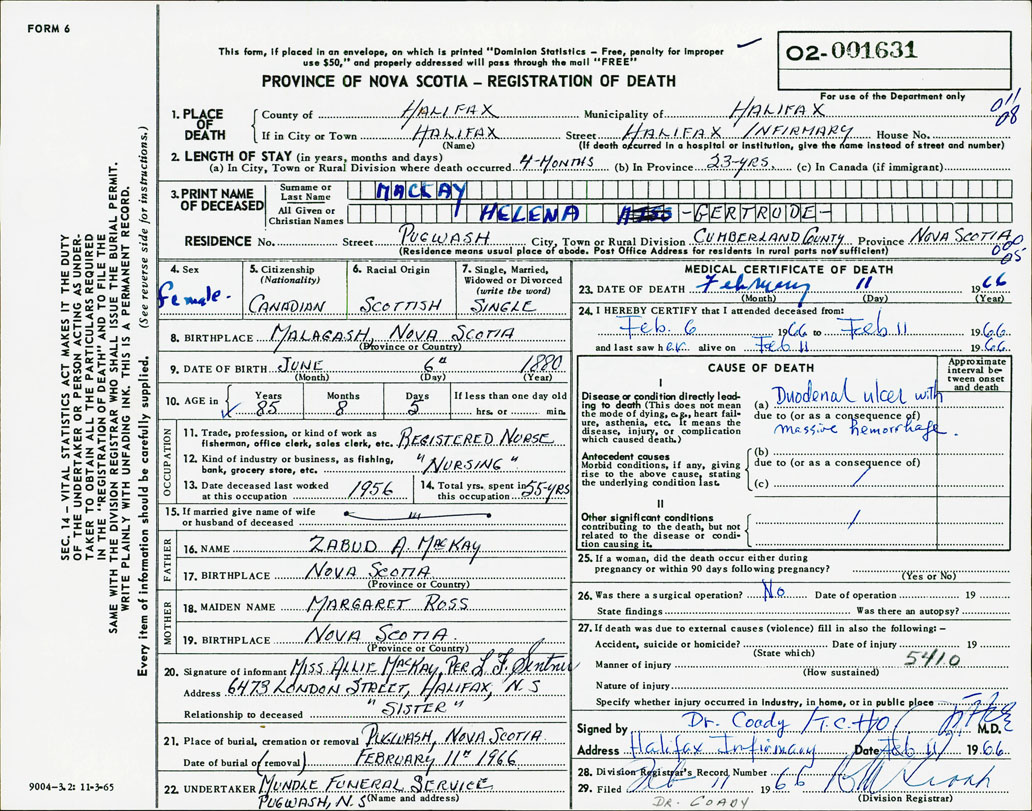 FORM 6
This form, if placed in an envelope, on which is printed "Dominion Statistics – Free, penalty for improper
use $50," and properly addressed will pass through the mail "FREE"
02-001631
PROVINCE OF NOVA SCOTIA – REGISTRATION OF DEATH
For use of the Department only
011
08
1. PLACE OF DEATH
County of HALIFAX Municipality of HALIFAX
If in City or Town HALIFAX Street HALIFAX INFIRMARY House No.
(Name) (If death occurred in a hospital or institution, give the name instead of street and number)
2. LENGTH OF STAY (in years, months and days)
(a) In City, Town or Rural Division where death occurred 4-MONTHS (b) In Province 23-YRS. (c) In Canada (if immigrant)
3. PRINT NAME OF DECEASED
Surname or Last Name MACKAY
All Given or Christian Names HELENA -GERTRUDE-
RESIDENCE No. Street PUGWASH City, Town or Rural Division CUMBERLAND COUNTY Province NOVA SCOTIA
(Residence means usual place of abode. Post Office Address for residents in rural parts not sufficient)
05
4. Sex Female.
5. Citizenship (Nationality) CANADIAN
6. Racial Origin SCOTTISH
7. Single, Married, Widowed or Divorced (write the word) SINGLE
8. BIRTHPLACE MALAGASH, NOVA SCOTIA
(Province or Country)
9. DATE OF BIRTH JUNE 6th 1880
(Month) (Day) (Year)
10. AGE in Years 85 Months 8 Days 5 If less than one day old hrs. or min.
OCCUPATION
11. Trade, profession, or kind of work as fisherman, office clerk, sales clerk, etc. REGISTERED NURSE
12. Kind of industry or business, as fishing, bank, grocery store, etc. "NURSING"
13. Date deceased last worked at this occupation 1956
14. Total yrs. spent in this occupation 55-YRS
15. If married give name of wife or husband of deceased
FATHER
16. NAME ZABUD A. MACKAY
17. BIRTHPLACE NOVA SCOTIA
(Province or Country)
MOTHER
18. MAIDEN NAME MARGARET ROSS
19. BIRTHPLACE NOVA SCOTIA.
(Province or Country)
20. Signature of informant MISS ALLIE MACKAY, PER L. F.
Address 6473 LONDON STREET, HALIFAX, N.S
Relationship to deceased "SISTER"
21. Place of burial, cremation or removal PUGWASH, NOVA SCOTIA
Date of burial or (removal) FEBRUARY 11th 1966
22. UNDERTAKER MUNDLE FUNERAL SERVICE
PUGWASH, N.S (Name and address)
MEDICAL CERTIFICATE OF DEATH
23. DATE OF DEATH February 11 1966
(Month) (Day) (Year)
24. I HEREBY CERTIFY that I attended deceased from:
Feb. 6 1966 to Feb 11 1966
and last saw her alive on Feb 11 1966
CAUSE OF DEATH
Approximate interval between onset and death
I
Disease or condition directly leading to death (This does not mean the mode of dying, e.g., heart failure, asthenia, etc. It means the disease, injury, or complication which caused death.)
(a) Duodenal ulcer with
due to (or as a consequence of)
massive hemorrhage.
Antecedent causes
Morbid conditions, if any, giving rise to the above cause, stating the underlying condition last.
(b)
due to (or as a consequence of)
(c)
II
Other significant conditions
contributing to the death, but not related to the disease or condition causing it.
25. If a woman, did the death occur either during
pregnancy or within 90 days following pregnancy?
(Yes or No)
26. Was there a surgical operation? No Date of operation 19
State findings Was there an autopsy?
27. If death was due to external causes (violence) fill in also the following: –
Accident, suicide or homicide? Date of injury 19
(State which)
Manner of injury 5410
(How sustained)
Nature of injury
Specify whether injury occurred in Industry, in home, or in public place
Signed by Dr. Coady M.D.
Address Halifax Infirmary Date Feb 11 1966
28. Division Registrar's Record Number
29. Filed Feb 11 1966
(Division Registrar)
DR. COADY
SEC. 14 – VITAL STATISTICS ACT MAKES IT THE DUTY
OF THE UNDERTAKER OR PERSON ACTING AS UNDER-
TAKER TO OBTAIN ALL THE PARTICULARS REQUIRED
IN THE "REGISTRATION OF DEATH" AND TO FILE THE
SAME WITH THE DIVISION REGISTRAR WHO SHALL ISSUE THE BURIAL PERMIT.
WRITE PLAINLY WITH UNFADING INK. THIS IS A PERMANENT RECORD.
Every item of information should be carefully supplied. (See reverse side for instructions.)
9004-3.2: 11-3-65